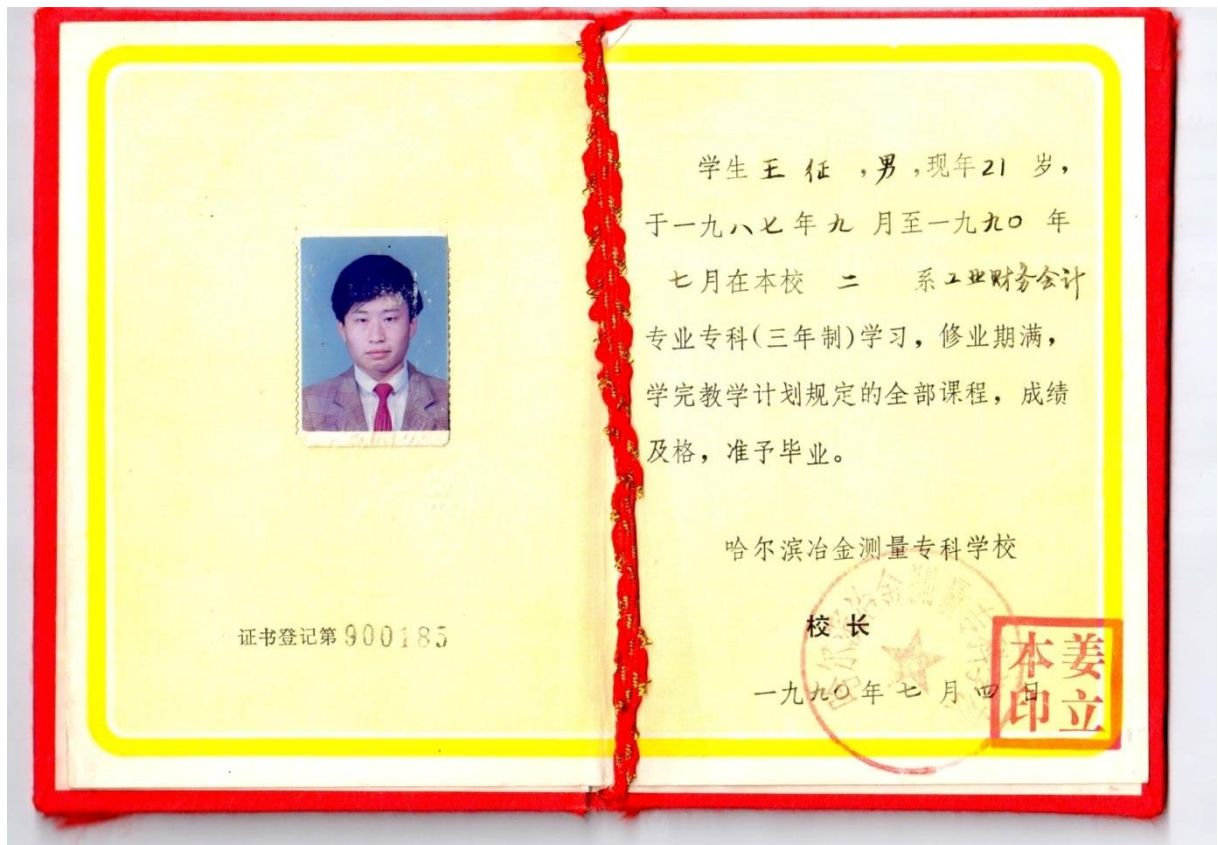 证书登记第 900185
学生 王 征 ，男，现年 21 岁，
于一九八七年九 月至一九九〇 年
七月在本校 二 系工业财务会计
专业专科(三年制)学习，修业期满，
学完教学计划规定的全部课程，成绩
及格，准予毕业。
哈尔滨冶金测量专科学校
校 长
姜立本印
一九九〇年七月四日
哈尔滨冶金测量专科学校